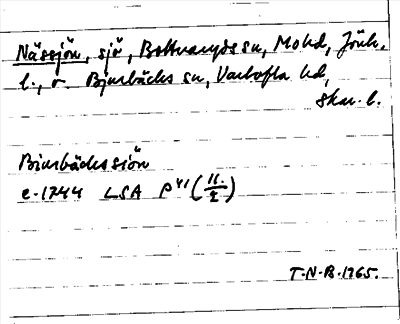 Nässjön, sjö, Bottnaryds sn, Mo hd, Jönk.
l., o. Bjurbäcks sn, Vartofta hd,
Skar. l.
Bjurbäckssjön
c. 1744 LSA P
T.N.B. 1965.